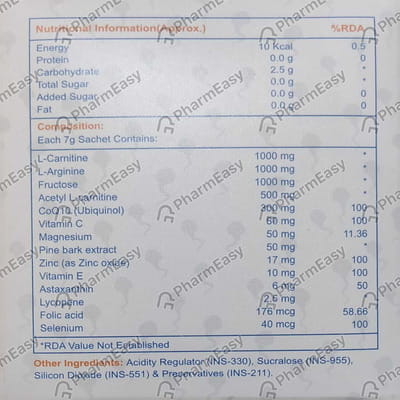 Nutritional Information(Approx.) %RDA
Energy 10 Kcal 0.5
Protein 0.0 g 0
Carbohydrate 2.5 g *
Total Sugar 0.0 g *
Added Sugar 0.0 g 0
Fat 0.0 g 0
Composition:
Each 7g Sachet Contains:
L-Carnitine 1000 mg *
L-Arginine 1000 mg *
Fructose 1000 mg *
Acetyl L-carnitine 500 mg *
CoQ10 (Ubiquinol) mg
Vitamin C 60 mg 100
Magnesium 50 mg 11.36
Pine bark extract 50 mg *
Zinc (as Zinc oxide) 17 mg 100
Vitamin E 10 mg 100
Astaxanthin 6 mg
Lycopene 2.5 mg
Folic acid 176 mcg 58.66
Selenium 40 mcg 100
*RDA Value Not Established
Other Ingredients: Acidity Regulator (INS-330), Sucralose (INS-955),
Silicon Dioxide (INS-551) & Preservatives (INS-211).
PharmEasy